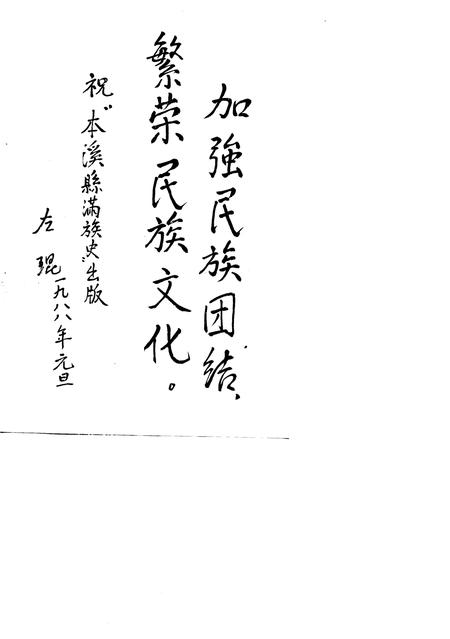 加強民族团结、
繁荣民族文化。
祝“本溪縣滿族史”出版
左琨
一九八八年元旦